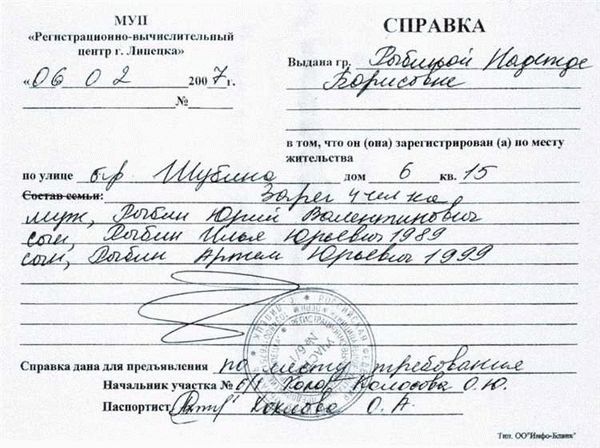 МУП
«Регистрационно-вычислительный
центр г. Липецка»
«06 02 2007г.
№
СПРАВКА
Выдана гр. Рыбиной Надежде
Борисовне
в том, что он (она) зарегистрирован (а) по месту
жительства
по улице б-р Шубина дом 6 кв. 15
Состав семьи: Зарег
муж, Рыбин Юрий Валентинович
сын, Рыбин Илья Юрьевич 1989
сын, Рыбин Артем Юрьевич 1999
Справка дана для предъявления по месту требования
Начальник участка № 6/1 Колосова О.Ю.
Паспортист О. А.
Тип. ОО"Инфо-Бланк"